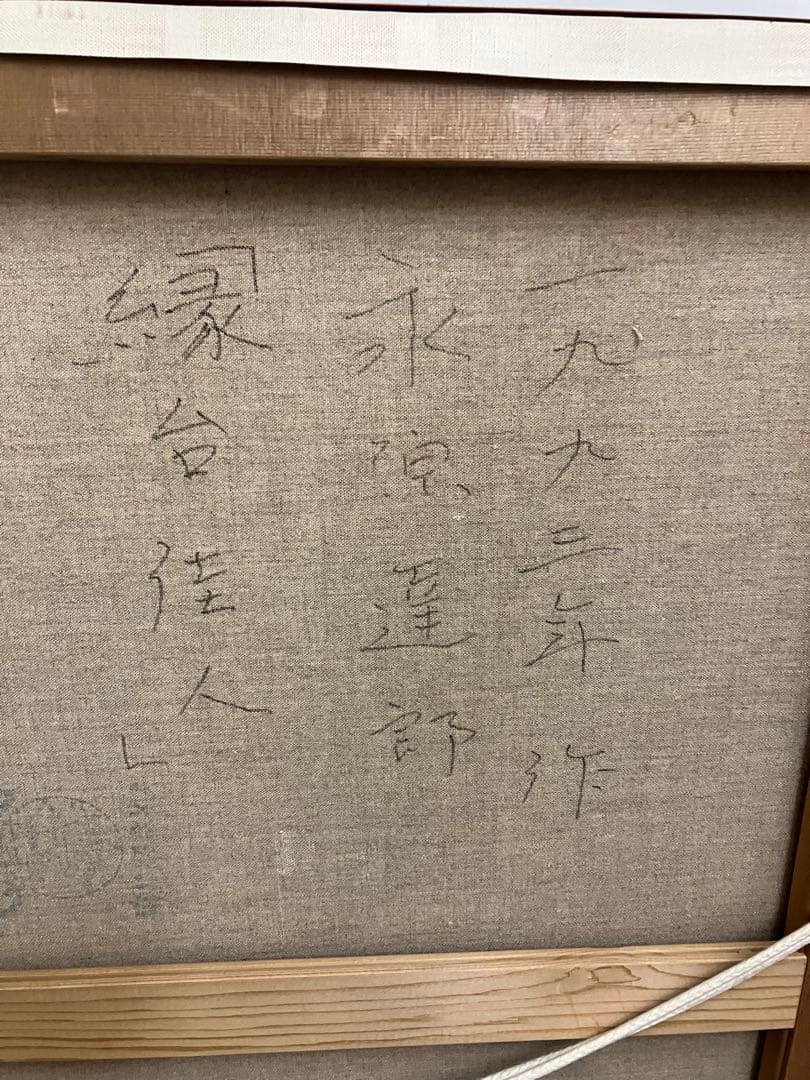 一九九三年作
永原達郎
「縁台佳人」